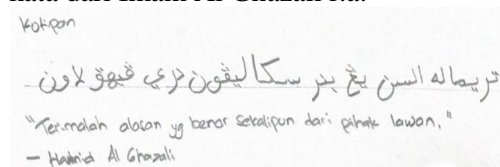 kata dari Imam Al-Ghazali r.a:
تريماله السن يڠ بنر سكاليڤون دري ڤيهق لاون
"Terimalah alasan yg benar sekalipun dari pihak lawan,"
– Hamid Al Ghazali